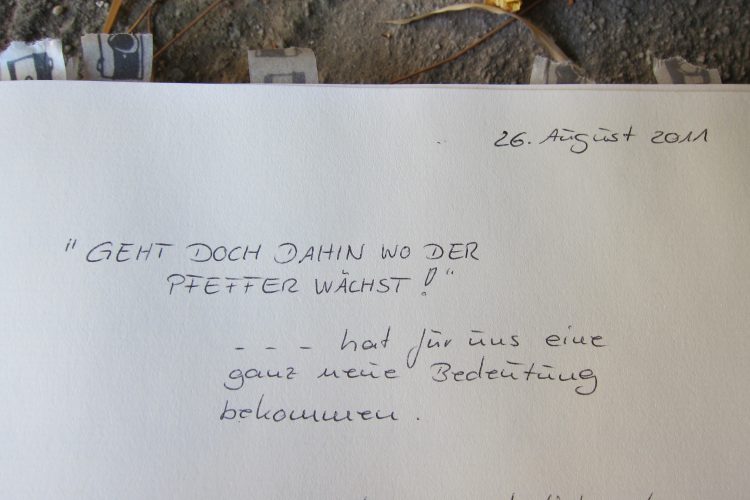 26. August 2011
"GEHT DOCH DAHIN WO DER
PFEFFER WÄCHST!"
--- hat für uns eine
ganz neue Bedeutung
bekommen.